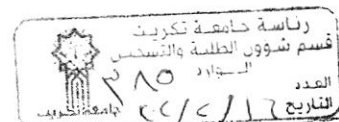 رئاسة جامعة تكريت
قسم شؤون الطلبة والتسجيل
الوارد
العدد ٣٨٥
التاريخ
جامعة تكريت